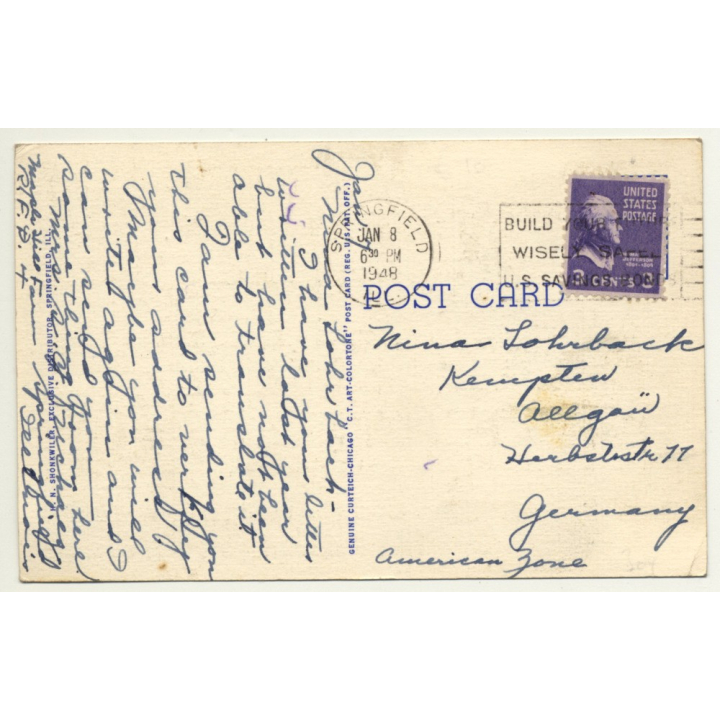 Jan
Nina Lohrback-
I have your letter
written last year
but have not been
able to translate it
I am sending you
this card to verify
your address.
Maybe you will
write again and I
can send you
something from here
Mrs.
R.F.D. 4
Springfield
Illinois
H. N. SHONKWILER, EXCLUSIVE DISTRIBUTOR, SPRINGFIELD, ILL.
GENUINE CURTEICH-CHICAGO "C.T. ART-COLORTONE" POST CARD (REG. U.S. PAT. OFF.)
SPRINGFIELD
JAN 8
6 30 PM
1948
BUILD YOUR
WISELY SAFELY
U.S. SAVINGS BONDS
UNITED
STATES
POSTAGE
3 CENTS 3
POST CARD
Nina Lohrback
Kempten
Allgaü
Herbststr 11
Germany
American Zone